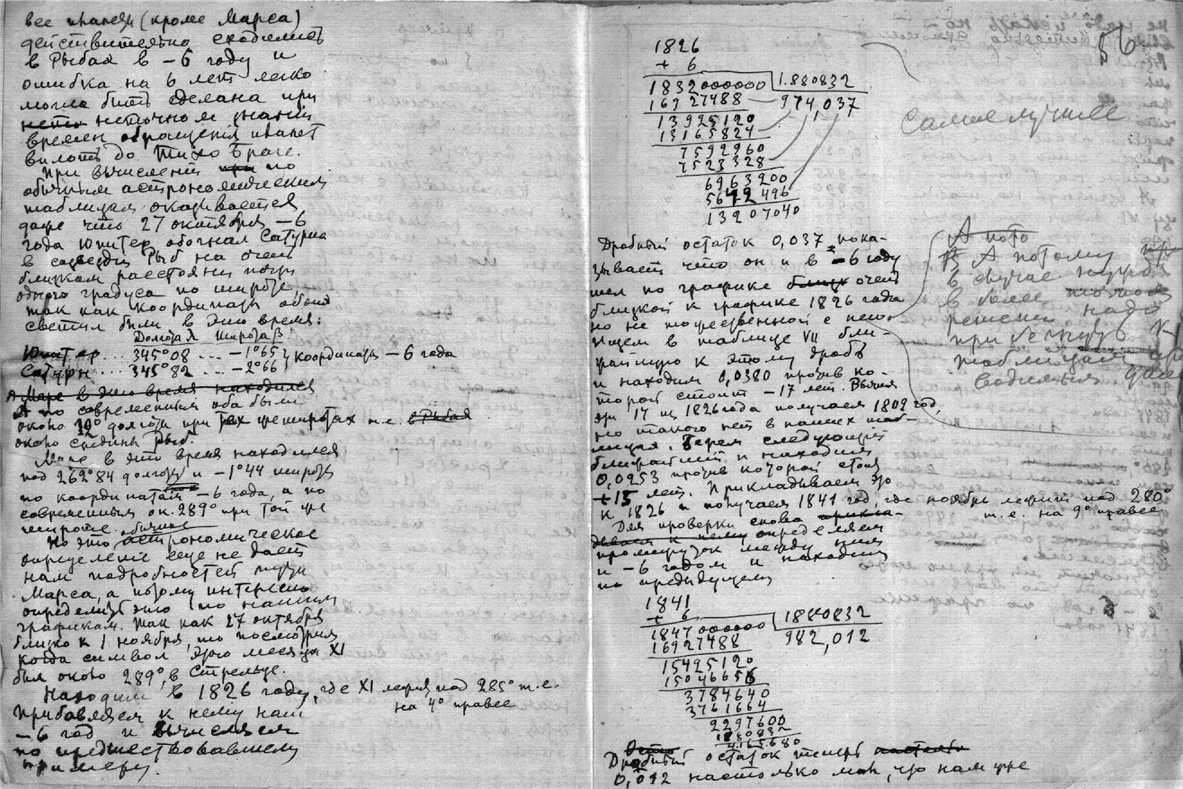 все планеты (кроме Марса)
действительно сходились
в Рыбах в –6 году и
ошибка на 6 лет легко
могла быть сделана при
неточном знании
времен обращения планет
вплоть до Тихо Браге.
При вычислении по
обычным астрономическим
таблицам оказывается
даже что 27 октября –6
года Юпитер обогнал Сатурна
в созвездии Рыб на очень
близком расстоянии
одного градуса по широте,
так как координаты обоих
светил были в это время:
Долгота λ Широта β
Юпитер... 345°08 ... –1°65
Сатурн ... 345°82 ... –2°66 } координаты –6 года
Марс в это время находился
А по современным оба были
около 10° долготы при тех же широтах т.е. в Рыбах
около средины Рыб.
Марс в это время находился
под 262°84 долготы и –1°44 широты
по координатам –6 года, а по
современным ок. 289° при той же
широте.
Но это обычное астрономическое
определение еще не дает
нам подробностей пути
Марса, а потому интересно
определить это по нашим
графикам. Так как 27 октября
близко к 1 ноября, то посмотрим
когда символ этого месяца XI
был около 289°, в Стрельце.
Находим в 1826 году, где XI лежит под 285° т.е.
на 4° правее
прибавляем к нему наш
–6 год и вычисляем
по предшествовавшему
примеру.
56
1826
+ 6
1832000000 1.880832
16927488 974,037
13925120
13165824
7592960
7523328
6963200
5642496
13207040
Самые лучшие
Дробный остаток 0,037 пока-
зывает что он и в –6 году
шел по графике близк очень
близкой к графике 1826 года
но не тожественной с нею.
Ищем в таблице VII бли-
жайшую к этому дробь
и находим 0,0380 против ко-
торой стоит –17 лет. Вычтя
эти 17 из 1826 года получаем 1809 год,
но такого нет в наших таб-
лицах. Берем следующий
ближайший и находим
0,0253 против которой стоит
+15 лет. Прикладываем это
к 1826 и получаем 1841 год, где ноябрь лежит под 280°
т.е. на 9° правее
Для проверки снова прикла-
дываем к нему определяем
промежуток между ним
и –6 годом и находим
по предыдущему
А пото
А потому
в случае нужды
в более
решении надо
прибегнуть к
таблицам
1841
+ 6
1847000000 1880832
16927488 982,012
15425120
15046656
3784640
3761664
2297600
1880832
4167680
Дробный остаток теперь
0,012 настолько мал, что нам уже